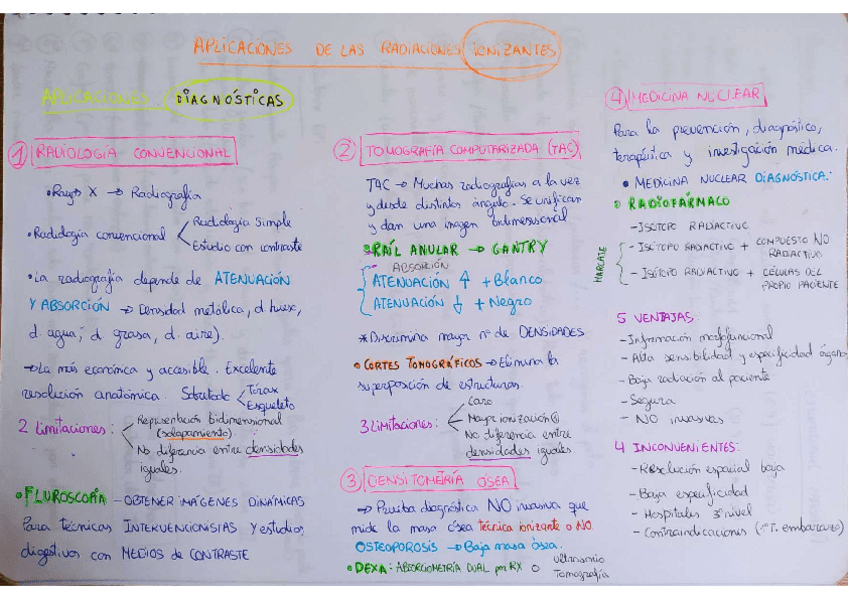 APLICACIONES DE LAS RADIACIONES IONIZANTES
APLICACIONES DIAGNÓSTICAS
1 RADIOLOGÍA CONVENCIONAL
• Rayos X → Radiografía
• Radiología convencional < Radiología Simple
Estudio con contraste
• La radiografía depende de ATENUACIÓN
Y ABSORCIÓN → Densidad metálica, d. hueso,
d. agua, d. grasa, d. aire).
→ La más económica y accesible. Excelente
resolución anatómica. Sobretodo < Tórax
Esqueleto
2 limitaciones: < Representación bidimensional
(solapamiento)
No diferencia entre densidades
iguales.
• FLUROSCOPIA – OBTENER IMÁGENES DINÁMICAS
Para técnicas INTERVENCIONISTAS Y estudios
digestivos con MEDIOS DE CONTRASTE
2 TOMOGRAFÍA COMPUTARIZADA (TAC)
TAC → Muchas radiografías a la vez
y desde distintos ángulo. Se unifican
y dan una imagen bidimensional
• RAÍL ANULAR → GANTRY
ABSORCIÓN
ATENUACIÓN ↑ + Blanco
ATENUACIÓN ↓ + Negro
* Discrimina mayor nº de DENSIDADES
• CORTES TOMOGRÁFICOS → Elimina la
superposición de estructuras.
3 limitaciones: < Caro
Mayor ionización
No diferencia entre
densidades iguales
3 DENSITOMETRÍA ÓSEA
→ Prueba diagnóstica NO invasiva que
mide la masa ósea técnica ionizante o NO
OSTEOPOROSIS → Baja masa ósea.
• DEXA: ABSORCIOMETRÍA DUAL por RX o ultrasonio
Tomografía
4 MEDICINA NUCLEAR
Para la prevención, diagnóstico,
terapéutica y investigación médica.
• MEDICINA NUCLEAR DIAGNÓSTICA:
• RADIOFÁRMACO
– ISÓTOPO RADIACTIVO
MARCAJE
– ISÓTOPO RADIACTIVO + COMPUESTO NO
RADIACTIVO
– ISÓTOPO RADIACTIVO + CÉLULAS DEL
PROPIO PACIENTE
5 VENTAJAS:
– Información morfofuncional
– Alta sensibilidad y especificidad
– Baja radiación al paciente
– Segura
– NO invasiva
4 INCONVENIENTES:
– Resolución espacial baja
– Baja especificidad
– Hospitales 3º nivel
– Contraindicaciones